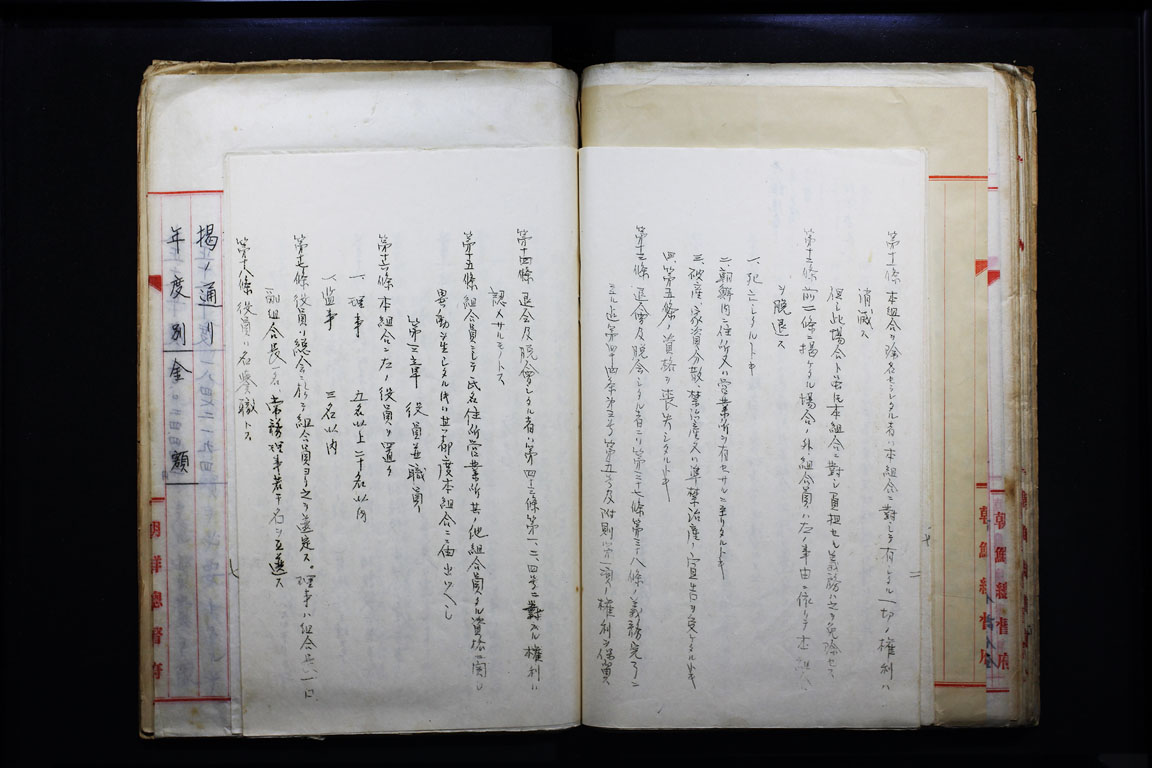 第十一條 本組合ヲ除名セラレタル者ハ本組合ニ對シテ有シタル一切ノ權利ハ
消滅ス
但シ此場合ト雖モ本組合ニ對シ負担セル義務ハ之ヲ免除セス
第十二條 前一條ニ揚ケタル場合ノ外組合員ハ左ノ事由ニ依リテ本組合
ヲ脱退ス
一、死亡シタルトキ
二、朝鮮内ニ住所又ハ営業所ヲ有セサルニ至リタルトキ
三、破産、家資分散、禁治産又ハ準禁治産ノ宣告ヲ受ケタルトキ
四、第五條ノ資格ヲ喪失シタルトキ
第十三條 退會及脱会シタル者ハ第三十七條第三十八條ノ義務完了
スル迄第四十四条第三号第五号及附則第一項ノ權利ヲ保買
第十四條 退会及脱會シタル者ハ第四十三條第一、二、四号ニ對スル權利ハ
認メサルモノトス
第十五條 組合員ニシテ氏名住所営業所其ノ他組合員タル資格ニ関シ
異動ヲ生シタル時ハ其ノ都度本組合ニ届出ツヘシ
第三章 役員並職員
第十六條 本組合ニ左ノ役員ヲ置ク
一、理事 五名以上二十名以内
一、監事 三名以内
第十七條 役員ハ總会ニ於テ組合員ヨリ之ヲ選定ス。理事ハ組合長一名
副組合長一名、常務理事若干名ヲ互選ス
第十八條 役員ハ名譽職トス
揭ノ通別
年度別金額
朝鮮總督府